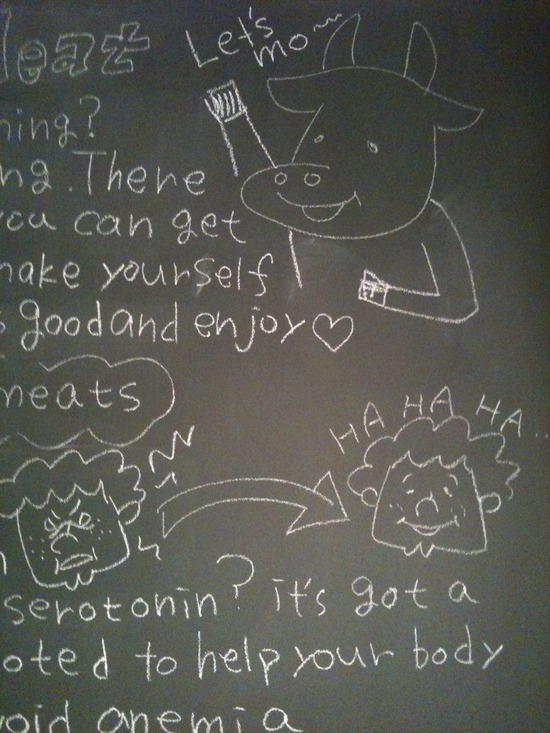 Let's
mo~
leat
ning?
ng. There
you can get
nake yourself
s good and enjoy♡
meats
HA HA HA...
serotonin? it's got a
oted to help your body
void anemia